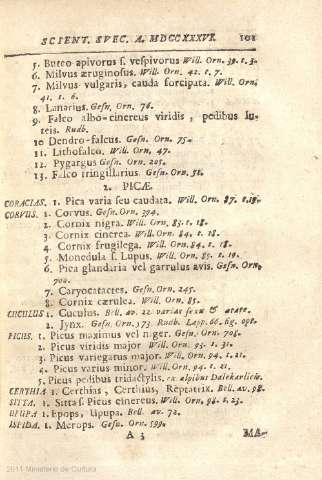 SCIENT. SVEC. A. MDCCXXXVI. 101
5. Buteo apivorus s. vespivorus Will. Orn. 39. t. 3.
6. Milvus æruginosus. Will. Orn. 42. t. 7.
7. Milvus vulgaris, cauda forcipata. Will. Orn.
41. t. 6.
8. Lanarius. Gesn. Orn. 76.
9. Falco albo-cinereus viridis, pedibus lu-
teis. Rudb.
10 Dendro-falcus. Gesn. Orn. 75.
11. Lithofalco. Will. Orn. 47.
12. Pygargus Gesn. Orn. 205.
13. Falco fringillarius. Gesn. Orn. 51.
2. PICÆ.
CORACIAS. 1. Pica varia seu caudata. Will. Orn. 87. t. 19.
CORVUS. 1. Corvus. Gesn. Orn. 394.
2. Cornix nigra. Will. Orn. 83. t. 18.
3. Cornix cinerea. Will. Orn. 84. t. 18.
4. Cornix frugilega. Will. Orn. 84. t. 18.
5. Monedula s. Lupus. Will. Orn. 85. t. 19.
6. Pica glandaria vel garrulus avis. Gesn. Orn.
700.
7. Caryocatactes. Gesn. Orn. 245.
8. Cornix cærulea. Will. Orn. 85.
CUCULUS 1. Cuculus. Bell. av. 22 varias sexu & ætate.
2. Jynx. Gesn. Orn. 573. Rudb. Lapp. 66. fig. opt.
PICUS. 1. Picus maximus vel niger. Gesn. Orn. 708.
2. Picus viridis major Will. Orn. 93. t. 21.
3. Picus variegatus major. Will. Orn. 94. t. 21.
4. Picus varius minor. Will. Orn. 94. t. 21.
5. Picus pedibus tridactylis. ex alpibus Dalekarlicis.
CERTHIA 1. Certhias, Certhius, Reptatrix. Bell. av. 98.
SITTA. 1. Sitta s. Picus cinereus. Will. Orn. 98. t. 23.
UPUPA 1. Epops, Upupa. Bell. av. 72.
ISPIDA. 1. Merops. Gesn. Orn. 599.
A 3 MA-
2011 Ministerio de Cultura